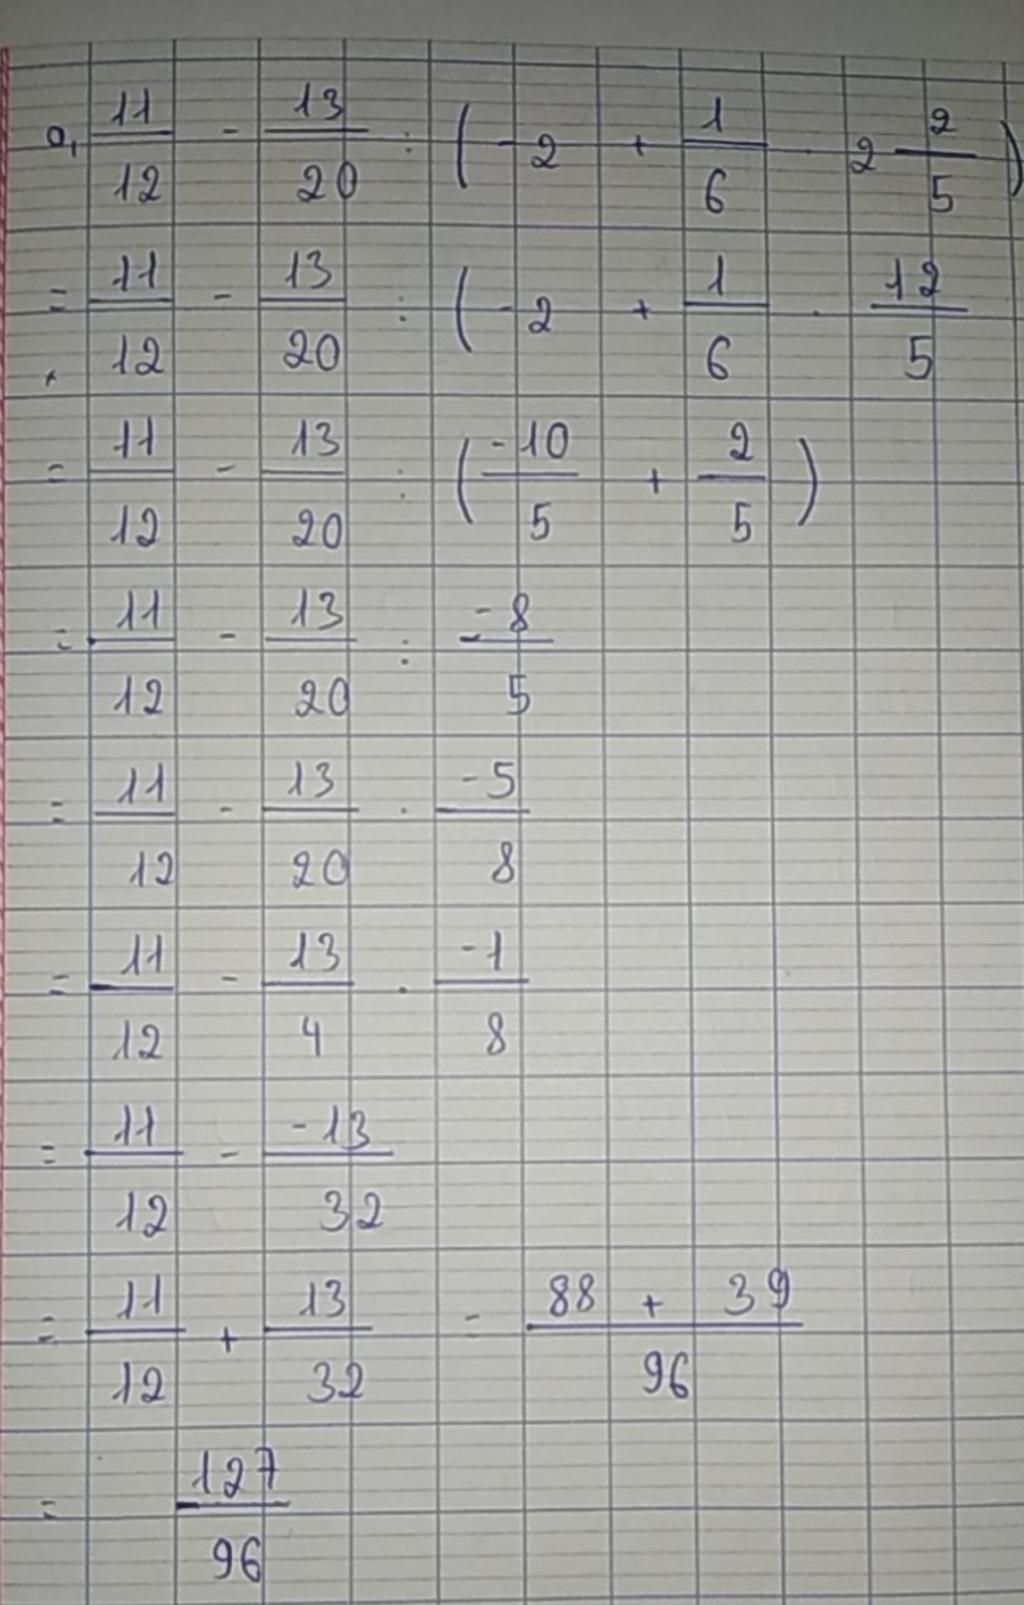 a, 11/12 - 13/20 : ( -2 + 1/6 . 2 2/5 )
= 11/12 - 13/20 : ( -2 + 1/6 . 12/5
= 11/12 - 13/20 : ( -10/5 + 2/5 )
= 11/12 - 13/20 : -8/5
= 11/12 - 13/20 . -5/8
= 11/12 - 13/4 . -1/8
= 11/12 - -13/32
= 11/12 + 13/32 = 88 + 39/96
= 127/96